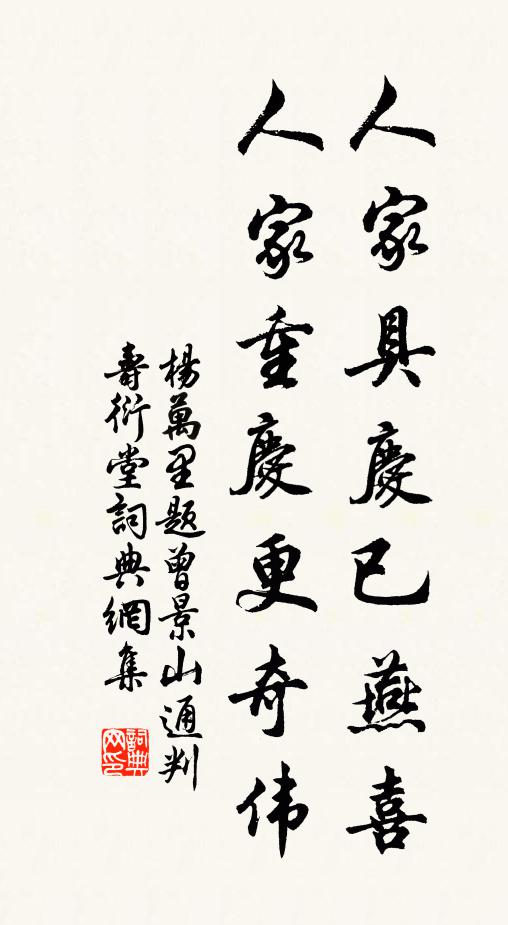 人家具慶已燕喜
人家重慶更奇伟
楊萬里題曾景山通判
壽衍堂詞典網集
詞典网印